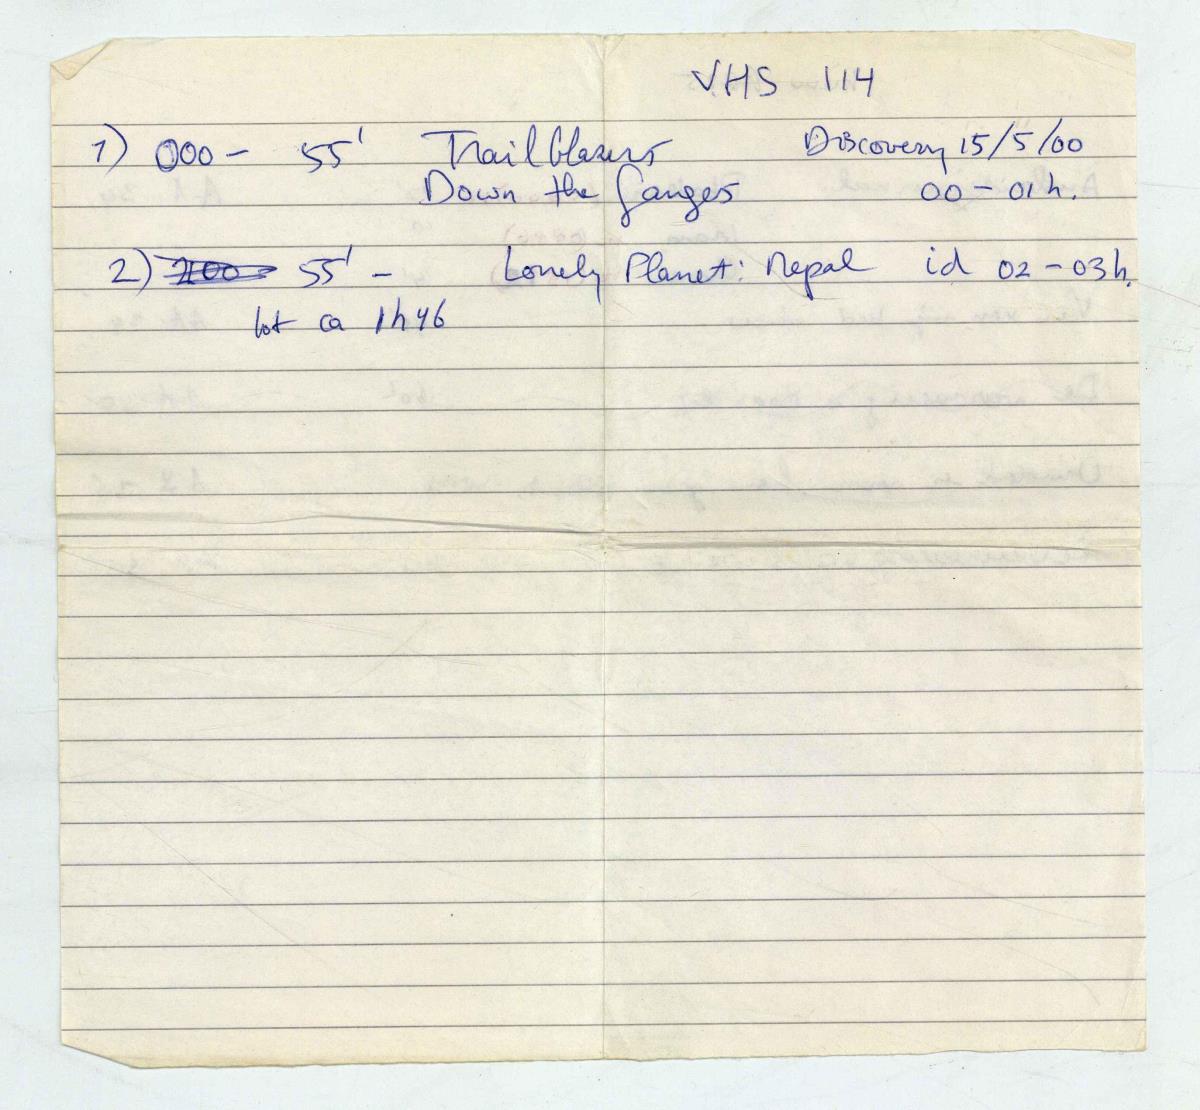 VHS 114
1) 000 - 55' Trailblazers Discovery 15/5/00
Down the Ganges 00 - 01 h.
2) 55' - Lonely Planet: Nepal id 02 - 03 h.
tot ca 1h46